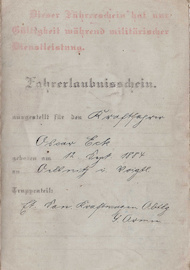 Dieser Fahrerschein hat nur
Gültigkeit während militärischer
Dienstleistung.
Fahrerlaubnisschein.
ausgestellt für den Kraftfahrer
Oscar
geboren am 12 Sept 1884
zu Oelsnitz i. Voigtl.
Truppenteil:
Kraftwagen Abtlg
4 Armee